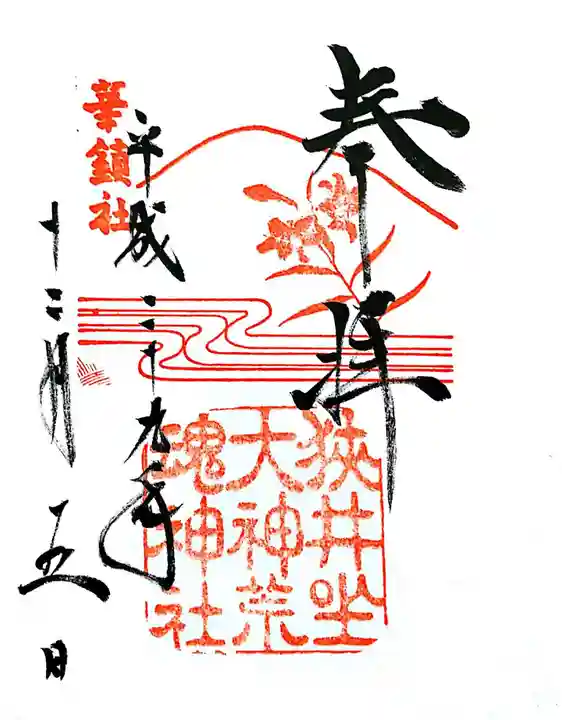 奉拝
狭井坐
大神荒
魂神社
華鎮社
平成二十九年
十二月五日